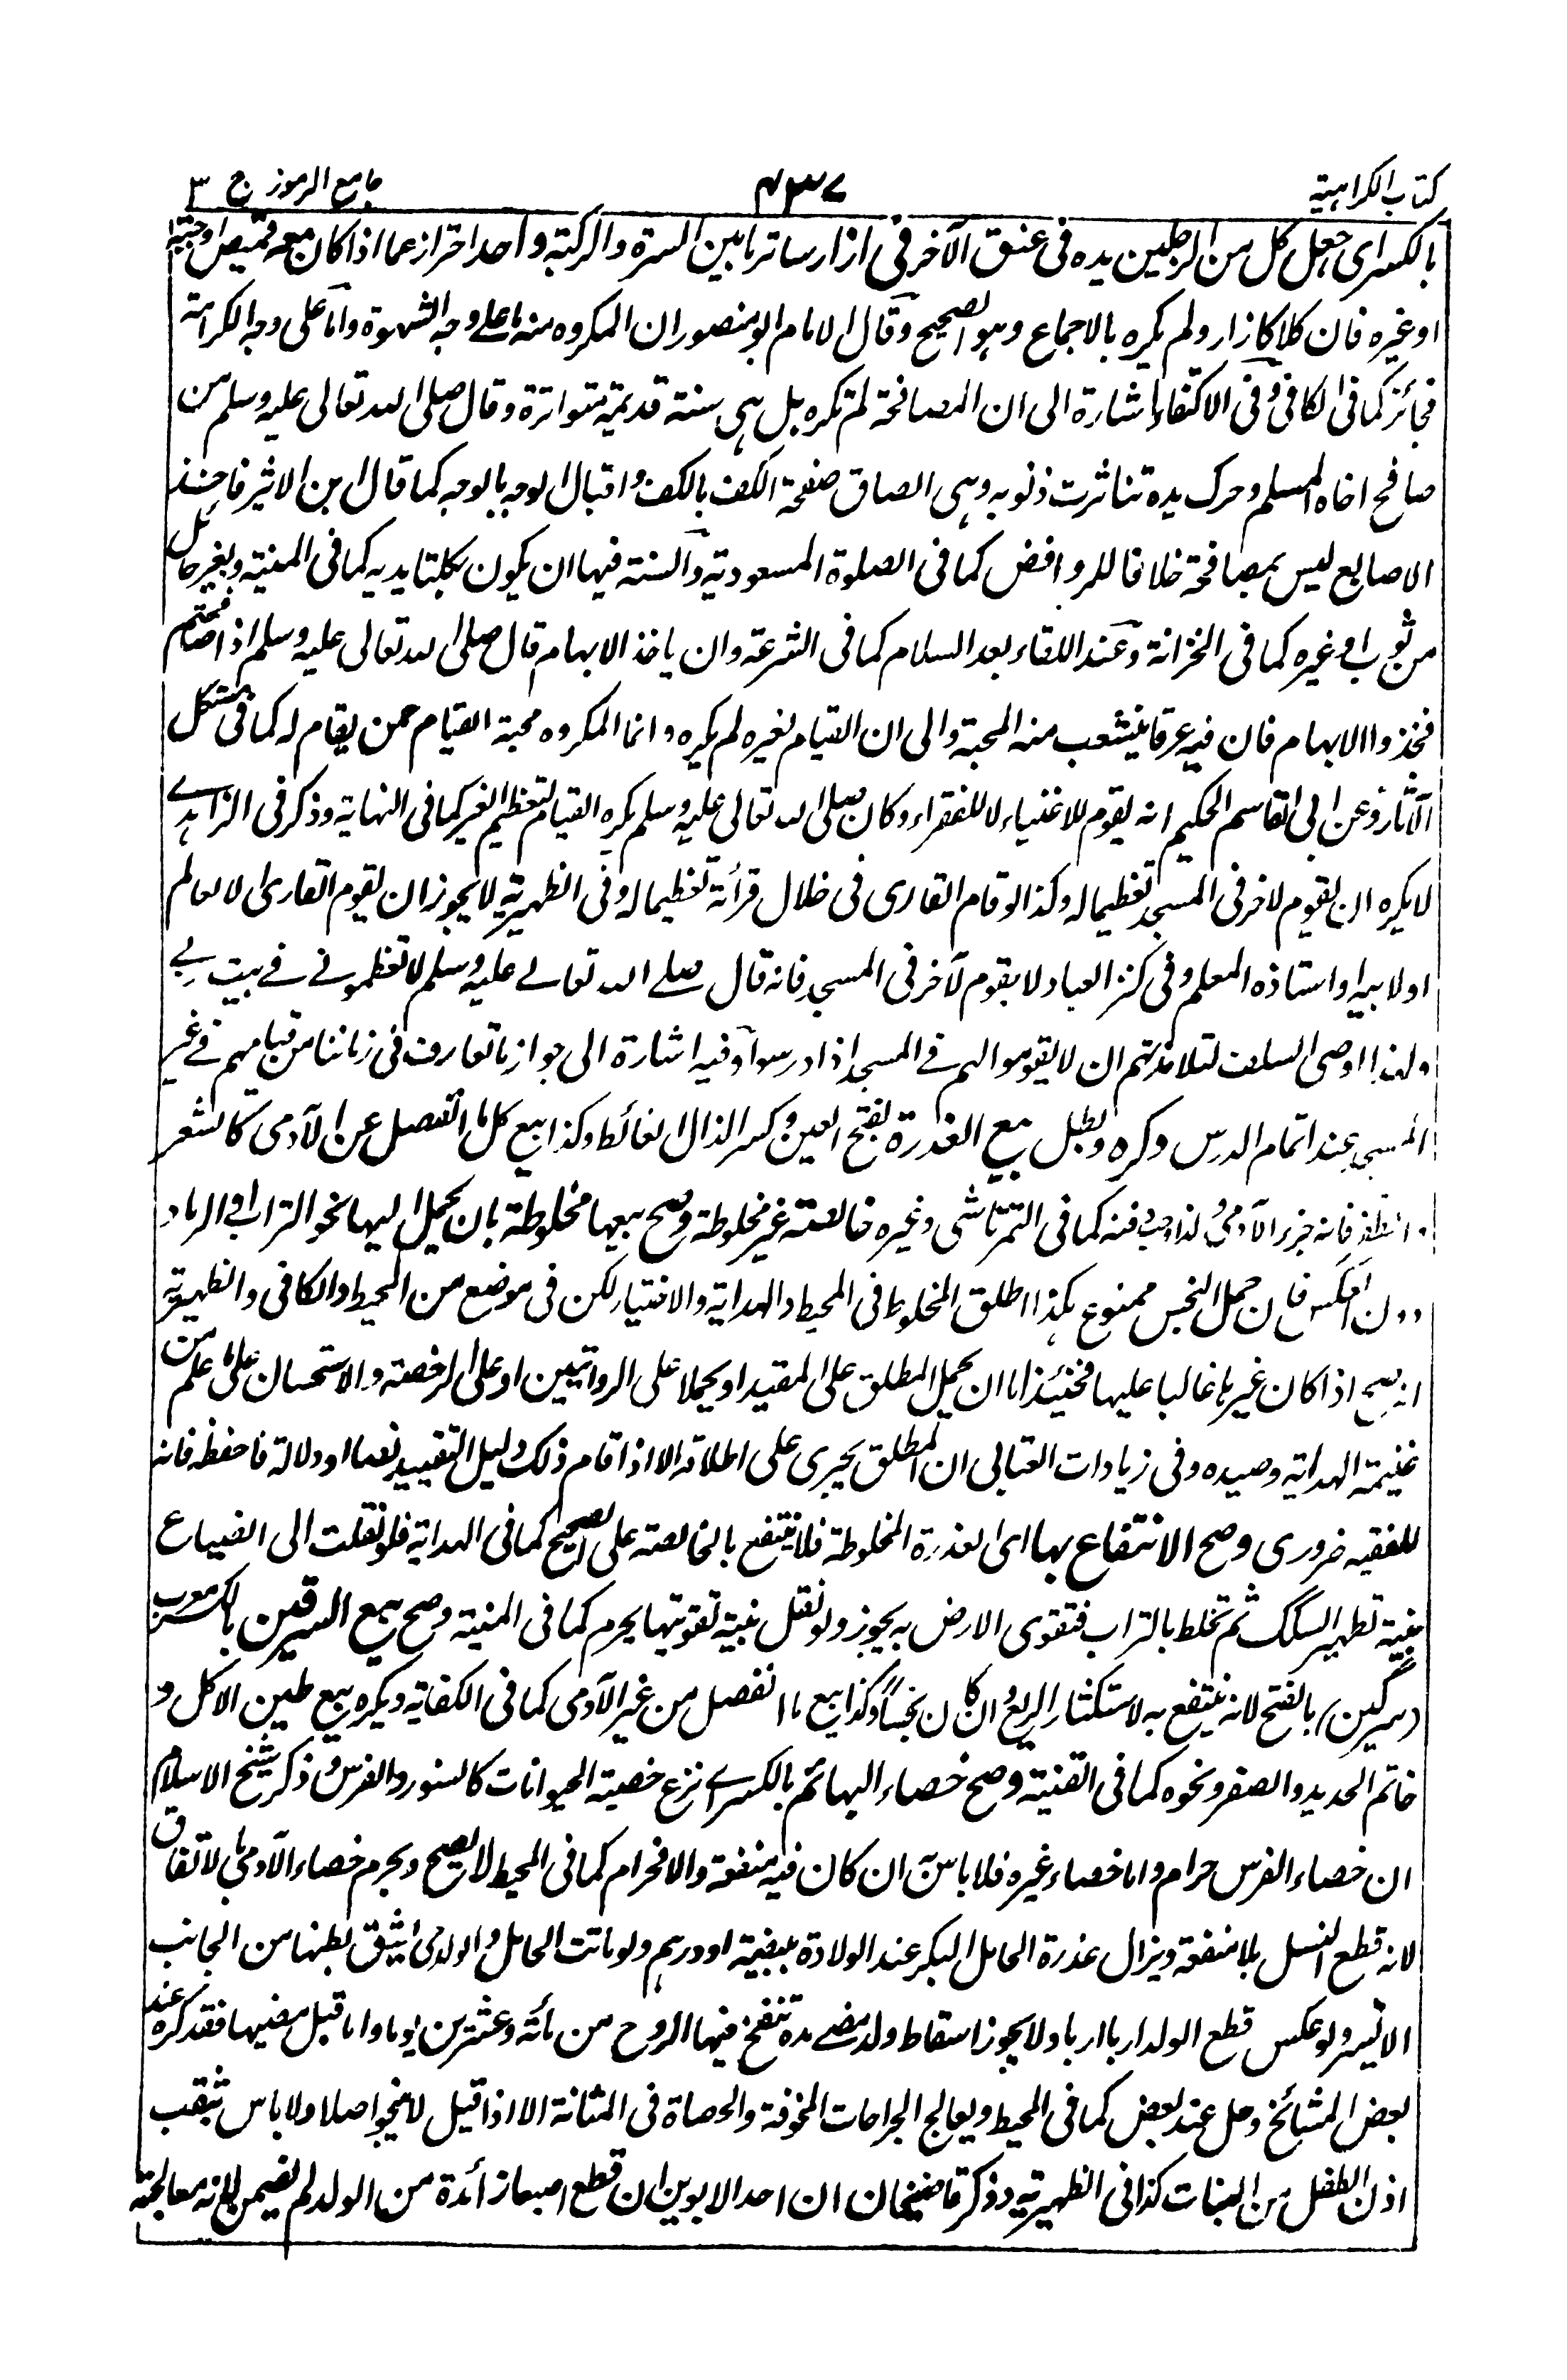 كتاب الكراهية ۷۳۷ جامع الرموز ج ۳
بالكسر اى جعل كل من الرجلين يده فى عنق الآخر فى ازار ساتر ما بين السرة والركبة واحد احتراز عما اذا كان معه قميص او جبة
او غيره فان كلا كازار ولم يكره بالاجماع وهو الصحيح وقال الامام ابو منصور ان المكروه منه ما على وجه الشهوة واما على وجه الكرامة
فجائز كما فى الكافى وفى الاكتفاء اشارة الى ان المصافحة لم تكره بل هى سنة قديمة متواترة وقال صلى الله تعالى عليه وسلم من
صافح اخاه المسلم وحرك يده تناثرت ذنوبه وهى الصاق صفحة الكف بالكف واقبال الوجه بالوجه كما قال ابن الاثير فاخذ
الاصابع ليس بمصافحة خلافا للروافض كما فى الصلوة المسعودية والسنة فيها ان يكون بكلتا يديه كما فى المنية وبغير حائل
من ثوب او غيره كما فى الخزانة وعند اللقاء بعد السلام كما فى الشرعة وان ياخذ الابهام قال صلى الله تعالى عليه وسلم اذا صافحتم
فخذوا الابهام فان فيه عرقا ينشعب منه المحبة والى ان القيام لغيره لم يكره وانما المكروه محبة القيام ممن يقام له كما فى مشكل
الآثار وعن ابى القاسم الحكيم انه يقوم للاغنياء لا للفقراء وكان صلى الله تعالى عليه وسلم يكره القيام لتعظيم الغير كما فى النهاية وذكر فى الزاهدے
لا يكره ان يقوم لاخر فى المسجد تعظيما له وكذا لو قام القارى فى خلال قرأة تعظيما له وفى الظهيرية لا يجوز ان يقوم القارى الا لعالم
او لابيه او استاذه المعلم وفى كنز العباد لا يقوم لآخر فى المسجد فانه قال صلے الله تعالے عليه وسلم لا تعظمونے فے بيت ربے
ولهذا اوصى السلف لتلامذتهم ان لا يقوموا لهم فے المسجد اذا درسوا وفيه اشارة الى جواز ما تعارف فى زماننا من قيامهم فے غير
المسجد عند اتمام الدرس وكره وبطل بيع العذرة بفتح العين وكسر الذال الغائط وكذا بيع كل ما انفصل عن الآدمى كالشعر
والظفر فانه جزء الآدمى ولذا وجب دفنه كما فى التمرتاشى وغيره خالصة غير مخلوطة وصح بيعها مخلوطة بان يحمل اليها نحو التراب او الرماد
دون العكس فان حمل النجس ممنوع هكذا اطلق المخلوط فى المحيط والهداية والاختيار لكن فى موضع من المحيط والكافى والظهيرية
انه يصح اذا كان غيرها غالبا عليها فحينئذ اما ان يحمل المطلق على المقيد او يحملا على الروايتين او على الرخصة والاستحسان على ما علم من
غنيمة الهداية وصيده وفى زيادات العتابى ان المطلق يجرى على اطلاقه الا اذا قام ذلك دليل التقييد نصا او دلالة فاحفظه فانه
للفقيه ضرورى وصح الانتفاع بها اى العذرة المخلوطة فلا ينتفع بالخالصة على الصحيح كما فى الهداية فلو نقلت الى الضياع
بنية تطهير السكك ثم تخلط بالتراب فتقوى الارض به يجوز ولو نقل بنية تقويتها يحرم كما فى المنية وصح بيع السرقين بالكسر معرب
(سرگين) بالفتح لانه ينتفع به لاستكثار الريع وان كان نجسًا وكذا بيع ما انفصل من غير الآدمى كما فى الكفاية ويكره بيع طين الاكل و
خاتم الحديد والصفر ونحوه كما فى القنية وصح خصاء البهائم بالكسر اے نزع خصية الحيوانات كالسنور والفرس وذكر شيخ الاسلام
ان خصاء الفرس حرام واما خصاء غيره فلا باس ان كان فيه منفعة والا فحرام كما فى المحيط لا يصح ويحرم خصاء الآدمى بالاتفاق
لانه قطع النسل بلا منفعة ويزال عذرة الحامل البكر عند الولادة ببيضة او درهم ولو ماتت الحامل والولد حى يشق بطنها من الجانب
الايسر ولو عكس قطع الولد اربا اربا ولا يجوز اسقاط ولد مضے مدة تنفخ فيها الروح من مائة وعشرين يوما واما قبل مضيها فقد كره عند
بعض المشائخ وحل عند بعض كما فى المحيط ويعالج الجراحات المخوفة والحصاة فى المثانة الا اذا قيل لا ينجو اصلا ولا باس بثقب
اذن الطفل من البنات كذا فى الظهيرية وذكر قاضيخان ان احد الابوين ان قطع اصبعا زائدة من الولد لم يضمن لانه معالجة